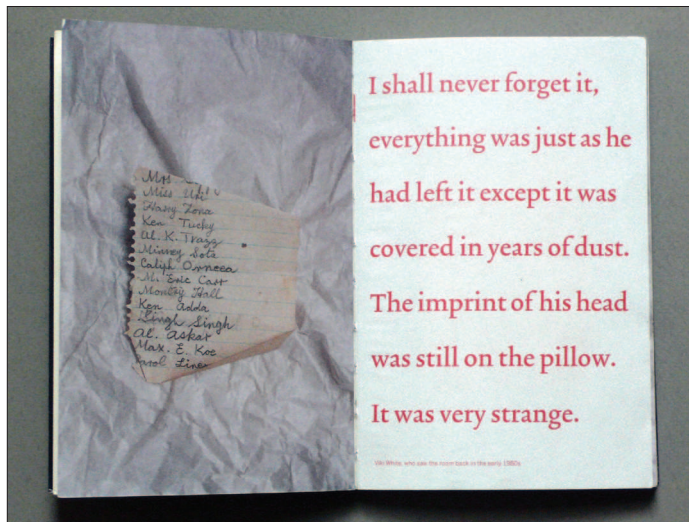 Mrs
Miss Uri
Harry Zona
Ken Tucky
Al. K. Trazz
Minney Sota
Caliph Orneea
M. Eric Carr
Montey Hall
Ken Adda
Singh Singh
Al. Askar
Max. E. Koe
arol Line
I shall never forget it,
everything was just as he
had left it except it was
covered in years of dust.
The imprint of his head
was still on the pillow.
It was very strange.
Viki White, who saw the room back in the early 1980s